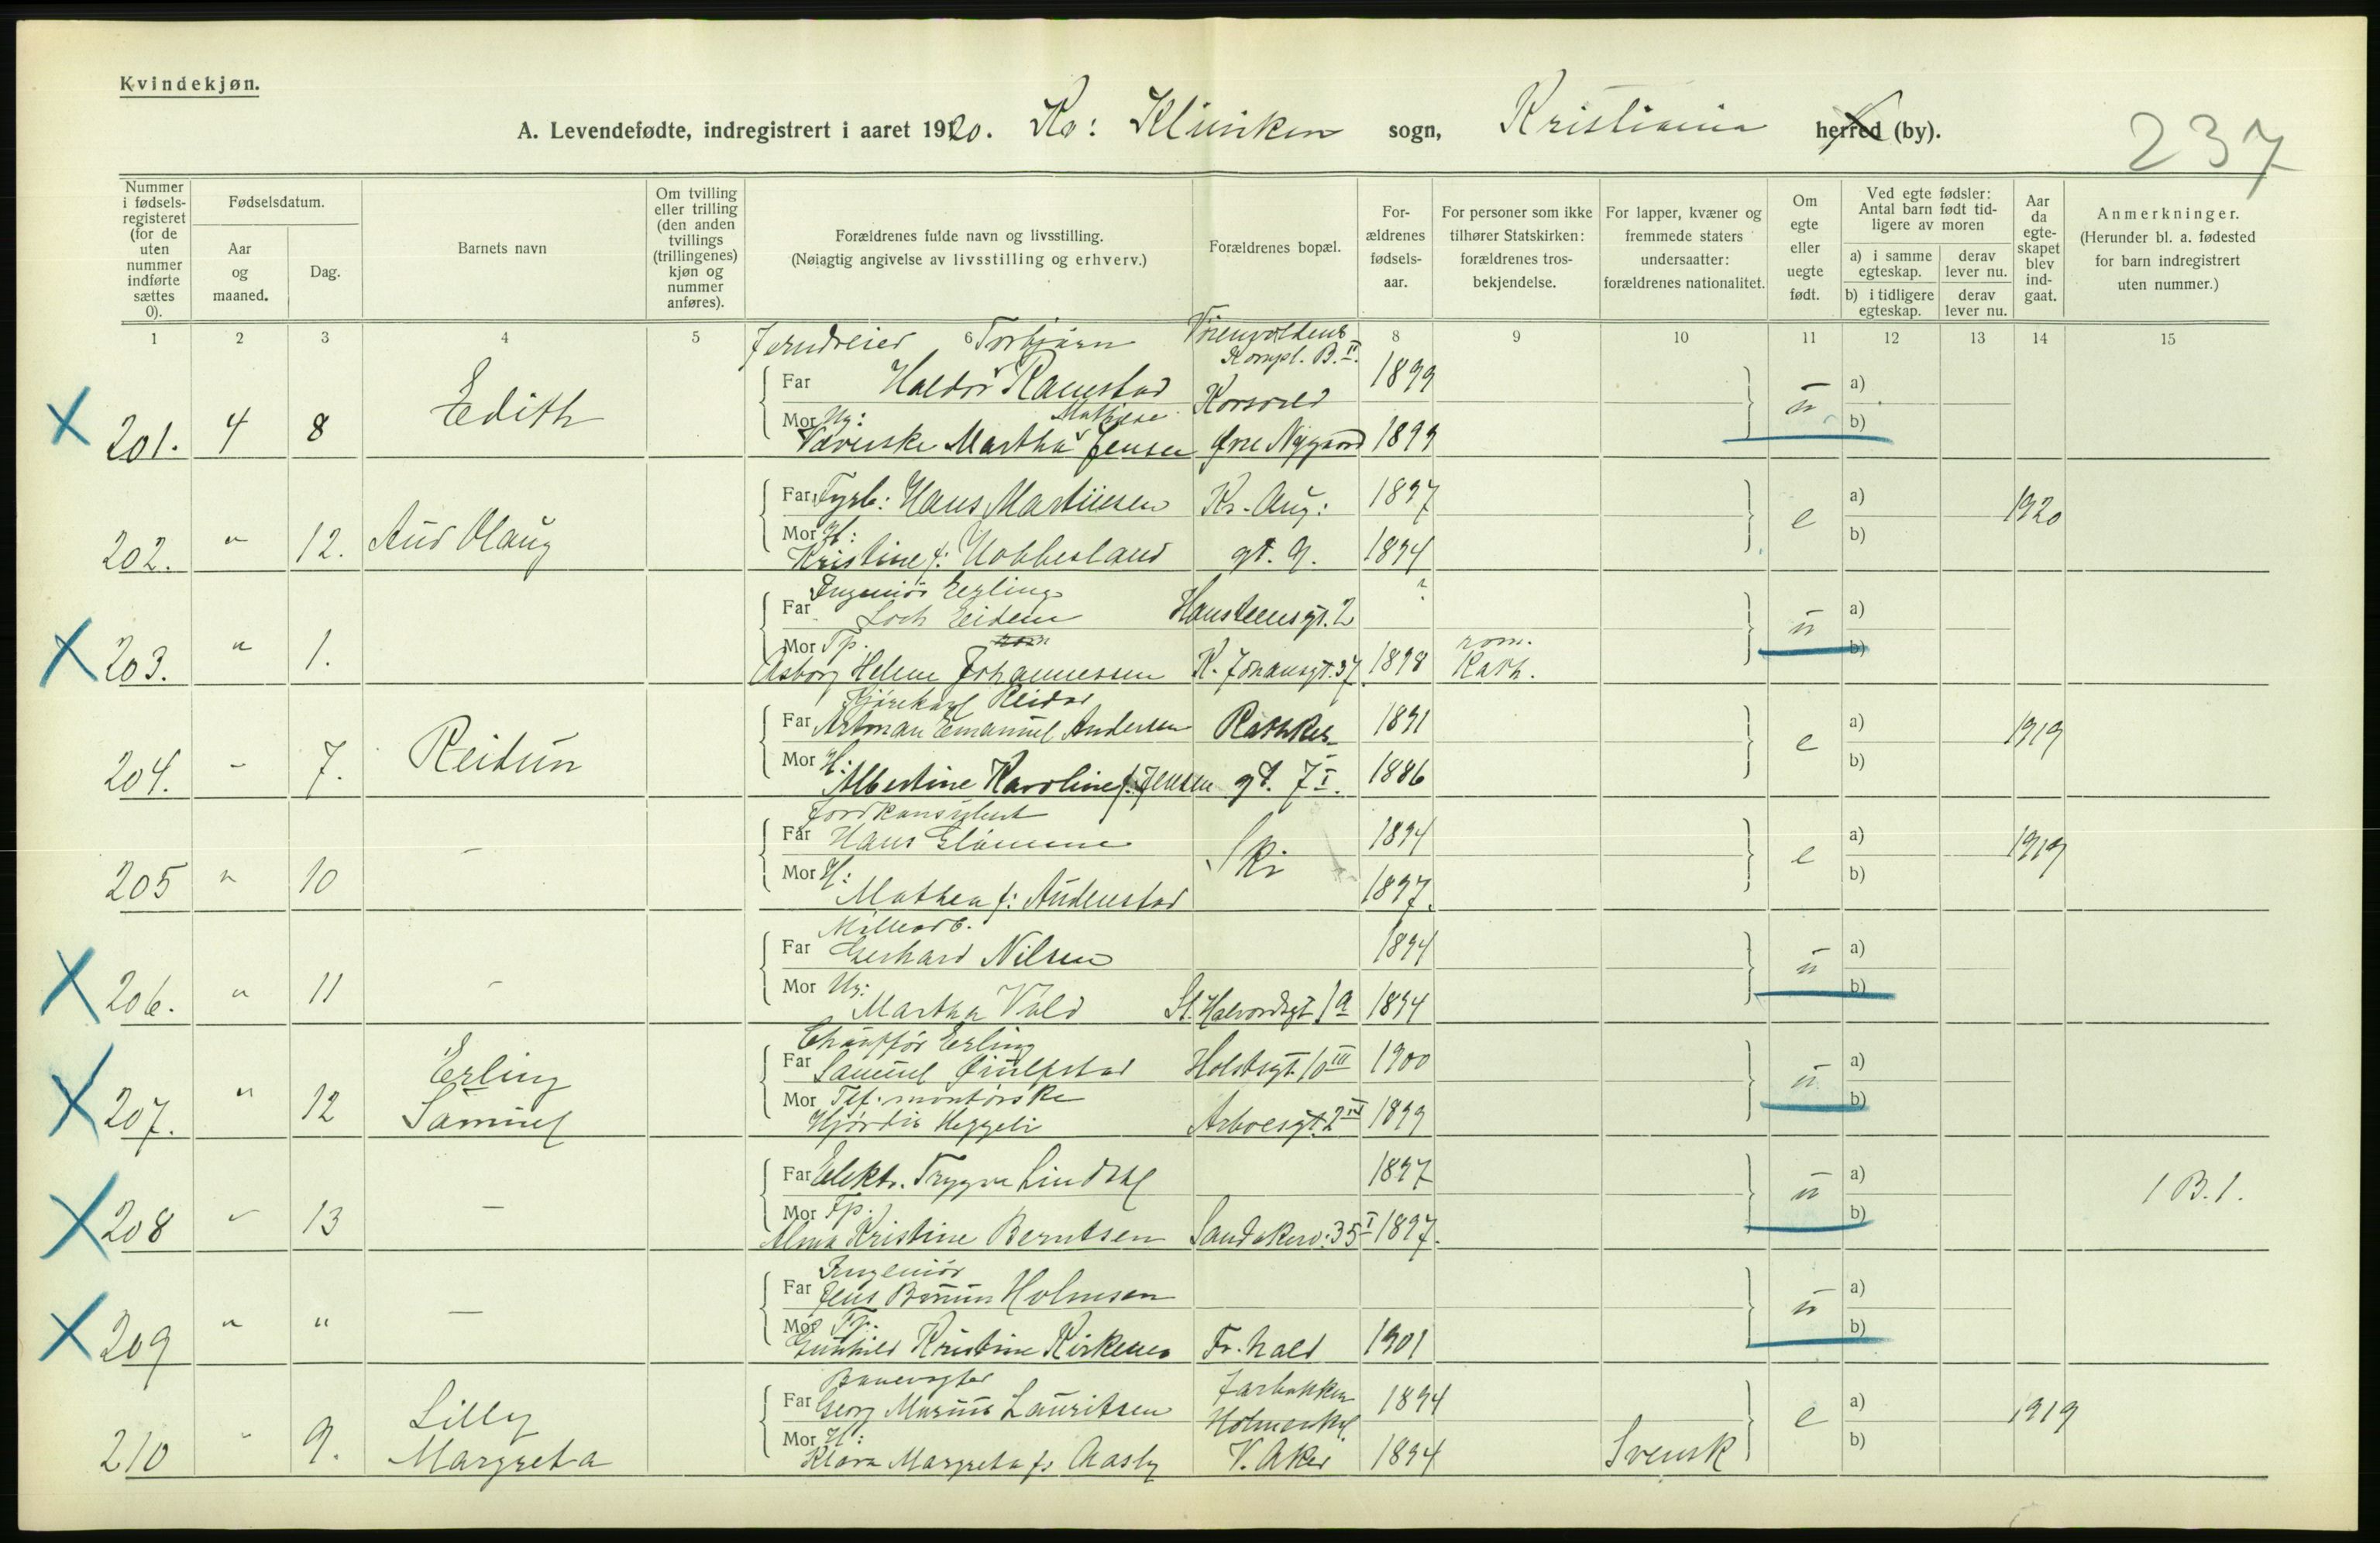 Kvindekjøn.
A. Levendefødte, indregistrert i aaret 1920. Kv: Kliniken sogn, Kristiania herred (by).
237
Nummer i fødselsregisteret (for de uten nummer indførte sættes 0).
Fødselsdatum.
Aar og maaned.
Dag.
Barnets navn
Om tvilling eller trilling (den anden tvillings (trillingenes) kjøn og nummer anføres).
Forældrenes fulde navn og livsstilling.
(Nøiagtig angivelse av livsstilling og erhverv.)
Forældrenes bopæl.
Forældrenes fødselsaar.
For personer som ikke tilhører Statskirken: forældrenes trosbekjendelse.
For lapper, kvæner og fremmede staters undersaatter: forældrenes nationalitet.
Om egte eller uegte født.
Ved egte fødsler: Antal barn født tidligere av moren
a) i samme egteskap.
derav lever nu.
b) i tidligere egteskap.
derav lever nu.
Aar da egteskapet blev indgaat.
Anmerkninger.
(Herunder bl. a. fødested for barn indregistrert uten nummer.)
1 2 3 4 5 6 8 9 10 11 12 13 14 15
Jerndreier Torbjørn
Kompl. B. II.
Far Haldor Ramstad 1899
a)
X 201. 4 8 Edith
Mor Ug: Mathilde
Væverske Martha Jensen Øvre Nygaard 1899 ü b)
Far Fyrb: Hans Martinsen Kr. Aug: 1897 a)
202. " 12. Aud Olaug e 1920
Mor H:
Kristine f: Hobbesland gt. 9. 1894 b)
Ingeniør Erling
Far Loch Eidem Hansteensgt. 2 ? a)
X 203. " 1. ü
Mor Tp. rom.
Asborg Helene Johannessen K. Johansgt. 37 1898 Kath. b)
Kjørekarl Reidar
Far Artman Emanuel Andersen Rathkes 1891 a)
204. " 7. Reidun e 1919
Mor H:
Albertine Karoline f. Jensen gt. 7 I. 1886 b)
Jordkonsulent
Far Hans Glømme 1894 a)
205 " 10 – Ski e 1919
Mor H:
Mathea f: Audenstad 1897. b)
Far Gerhard Nilsen 1894 a)
X 206. " 11 – ü
Mor Ug:
Martha Vold St. Halvordsgt 1a 1894 b)
Chauffør Erling
Far Samuel Holstsgt. 10 III 1900 a)
X 207. " 12 Erling Samuel ü
Mor Tlf. montørske
Hjørdis Heggeli Arboesgt. 2 IV 1899 b)
Far Elektr. Trygve Lindahl 1897 a)
X 208 " 13 – ü 1 B. 1.
Mor Tp.
Alma Kristine Berntsen Sandakerv: 35 I 1897. b)
Ingeniør
Far Jens Holmsen a)
X 209 " " – ü
Mor Tp:
Gunhild Kristine Kirkenes Fr. hald 1901 b)
Banevogter
Far Georg Marius Lauritsen Holmenkol 1894 a)
210 " 9. Lilly Margreta e 1919
Mor H:
Klara Margreta f: Aasly V. Aker 1894 Svensk b)